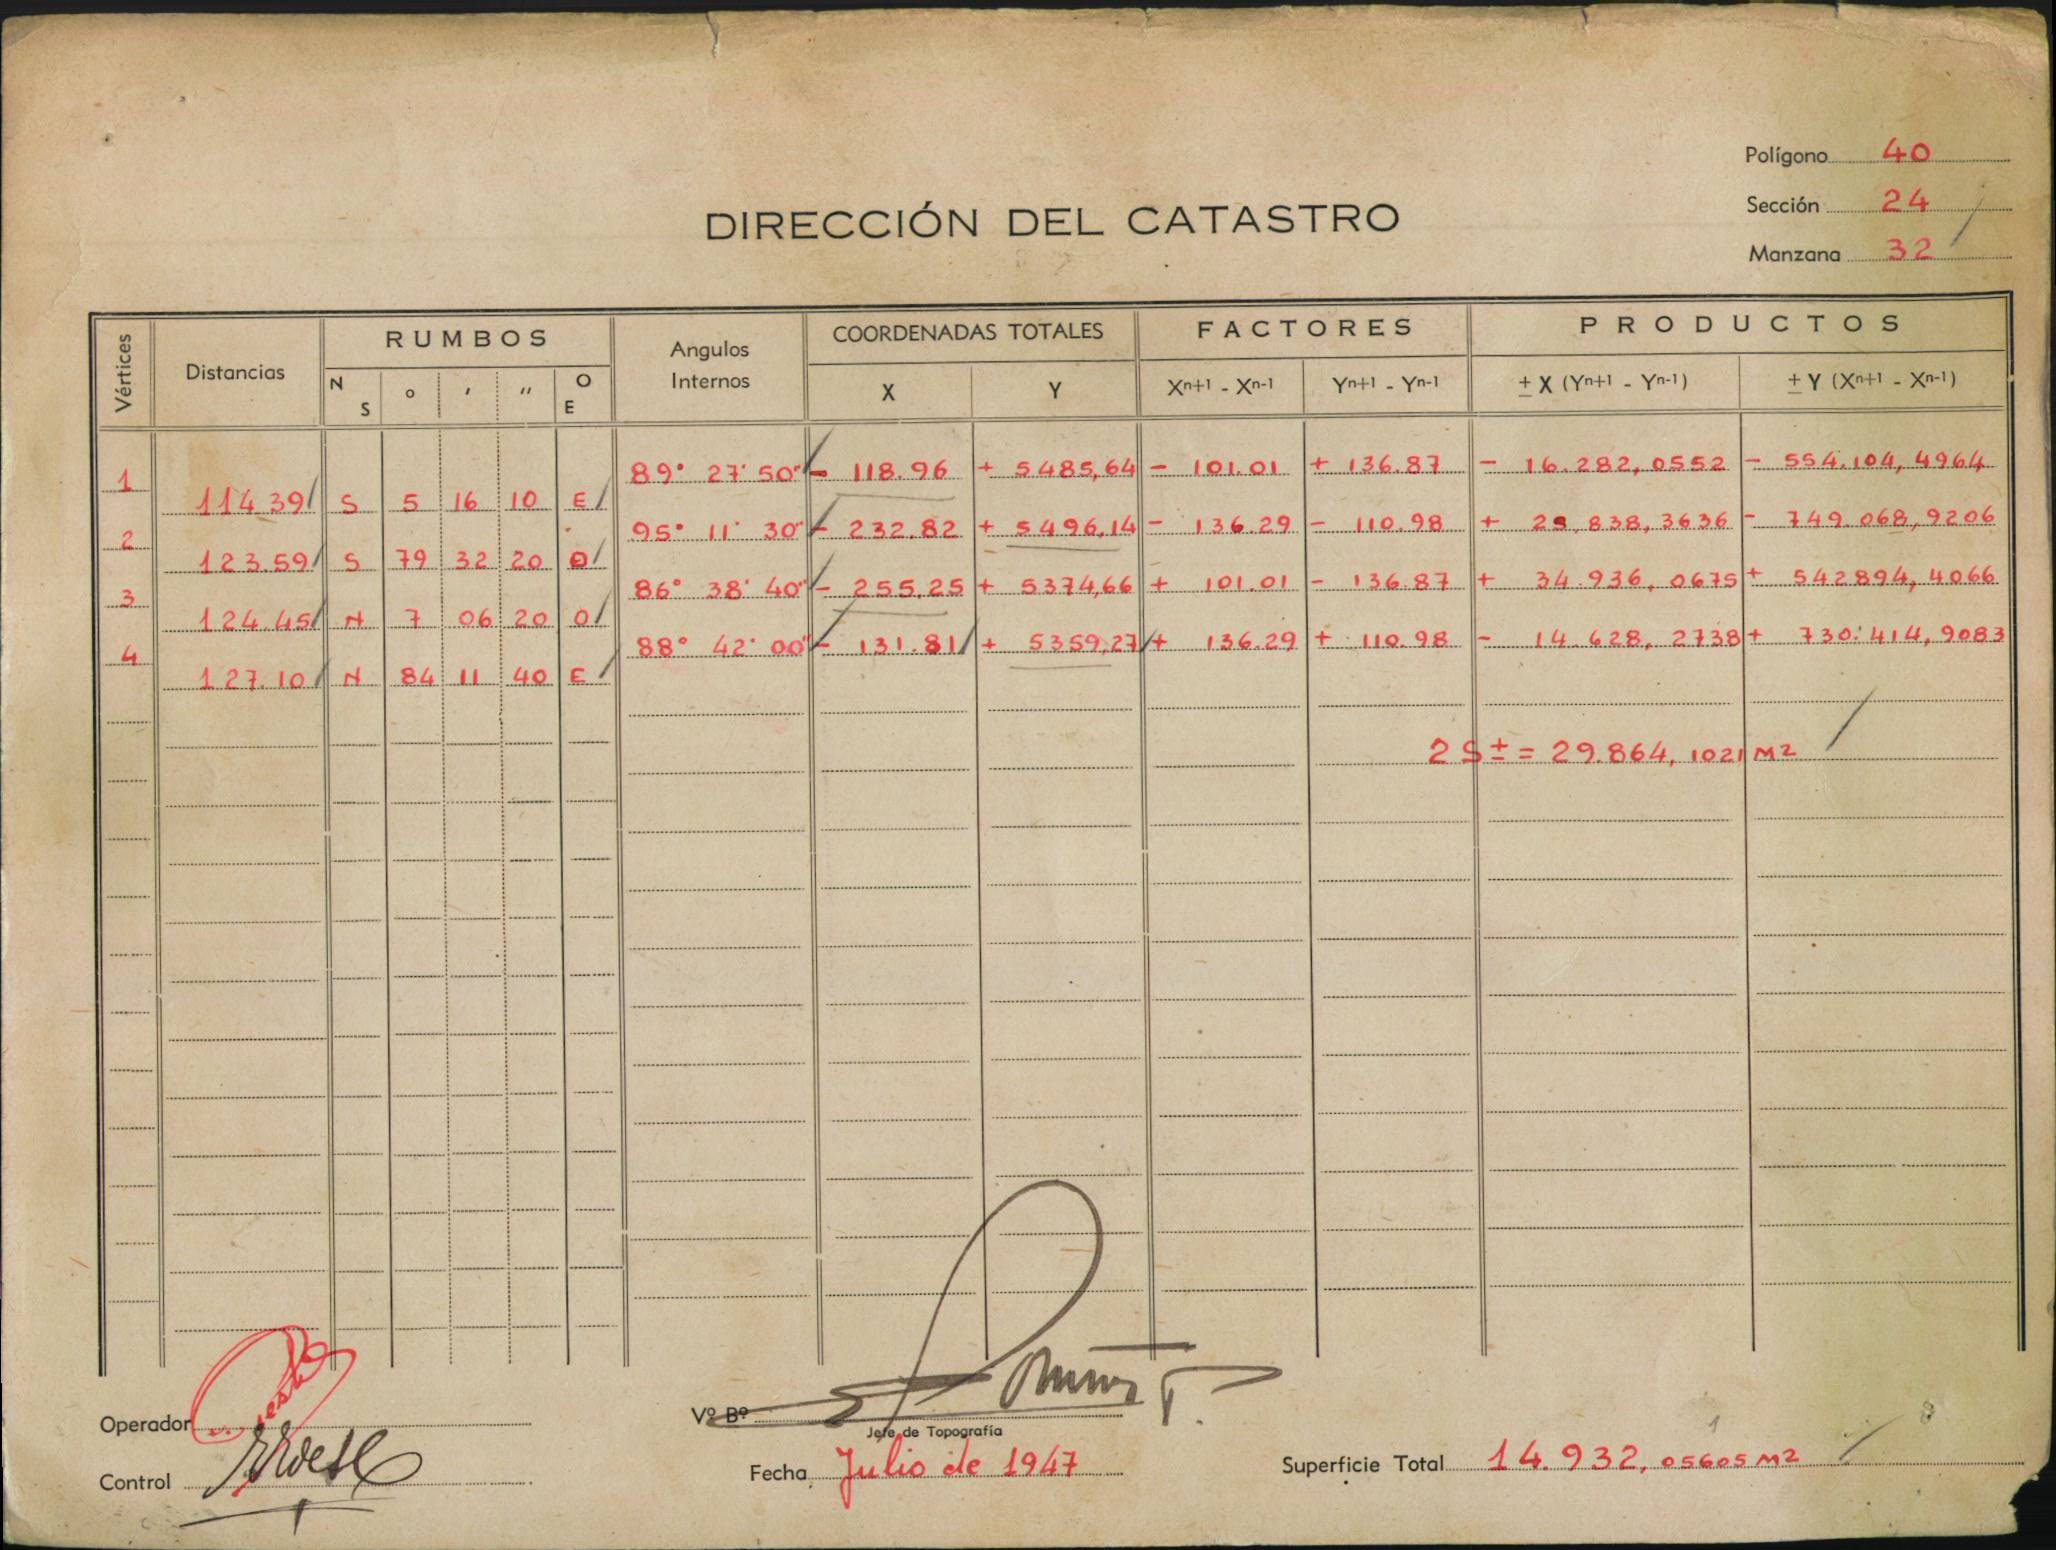 Polígono 40
Sección 24
Manzana 32
DIRECCIÓN DEL CATASTRO
Vértices Distancias RUMBOS Angulos Internos COORDENADAS TOTALES FACTORES PRODUCTOS
N S ° ' " O E X Y Xn+1 - Xn-1 Yn+1 - Yn-1 ± X (Yn+1 - Yn-1) ± Y (Xn+1 - Xn-1)
1 89° 27' 50" - 118.96 + 5485,64 - 101.01 + 136.87 - 16.282,0552 - 554.104,4964
114.39 S 5 16 10 E
2 95° 11' 30" - 232.82 + 5496,14 - 136.29 - 110.98 + 25.838,3636 - 749.068,9206
123.59 S 79 32 20 O
3 86° 38' 40" - 255.25 + 5374,66 + 101.01 - 136.87 + 34.936,0675 + 542.894,4066
124.45 N 7 06 20 O
4 88° 42' 00" - 131.81 + 5359,27 + 136.29 + 110.98 - 14.628,2738 + 730.414,9083
127.10 N 84 11 40 E
2 S ± = 29.864,1021 M2
Operador
Vº Bº
Jefe de Topografía
Control
Fecha Julio de 1947
Superficie Total 14.932,05605 M2